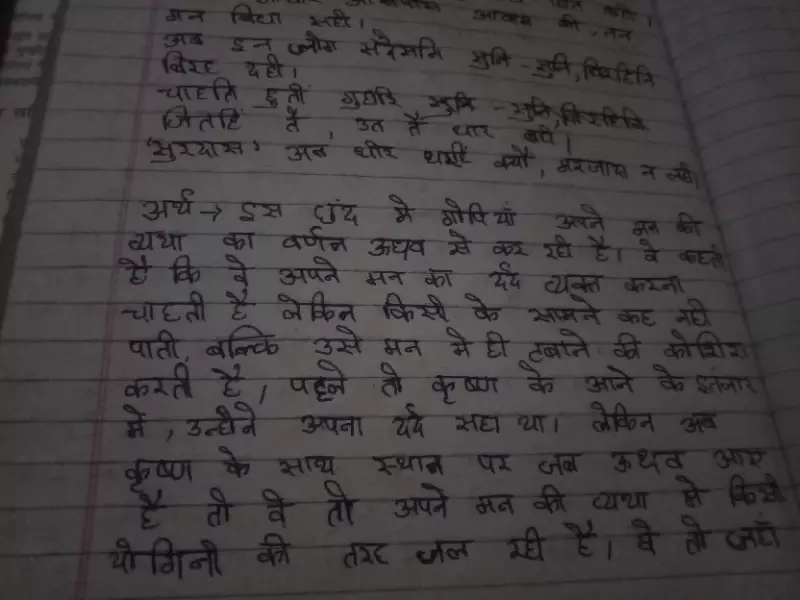 आवन की, तन
मन बिथा सही।
अब इन जोग संदेसनि सुनि-सुनि, बिरहिनि
बिरह दही।
चाहति हुतीं गुहारि सुनि-सुनि, बिरहिनि
जितहिं तैं, उत तैं धार बही।
'सूरदास' अब धीर धरहिं क्यौं, मरजादा न लही।
अर्थ → इस छंद मे गोपियां अपने मन की
व्यथा का वर्णन ऊधव से कर रही है। वे कहती
है कि वे अपने मन का दर्द व्यक्त करना
चाहती है लेकिन किसी के सामने कह नही
पाती, बल्कि उसे मन मे ही दबाने की कोशिश
करती है, पहले तो कृष्ण के आने के इंतजार
मे, उन्होने अपना दर्द सहा था। लेकिन अब
कृष्ण के साथ स्थान पर जब ऊधव आए
है तो वे तो अपने मन की व्यथा मे किसी
योगिनी की तरह जल रही है। वे तो जहाँ